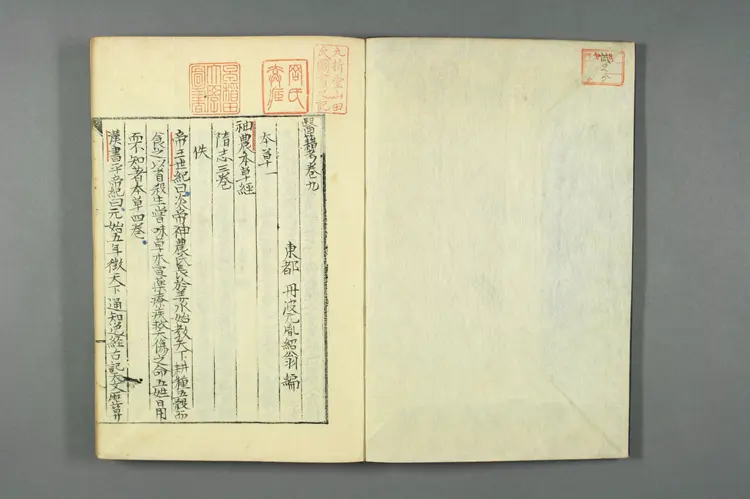 醫籍考卷九
東都 丹波元胤紹翁 編
本草一
神農本草經
隋志三卷
佚
帝王世紀曰炎帝神農氏長於姜水始教天下耕種五穀而
食之以省殺生嘗味草木宣藥療疾救夭傷之命百姓日用
而不知著本草四卷
漢書平帝紀曰元始五年徵天下通知逸經古記天文曆算
早稻田大學圖書
九折堂山田氏圖書之記